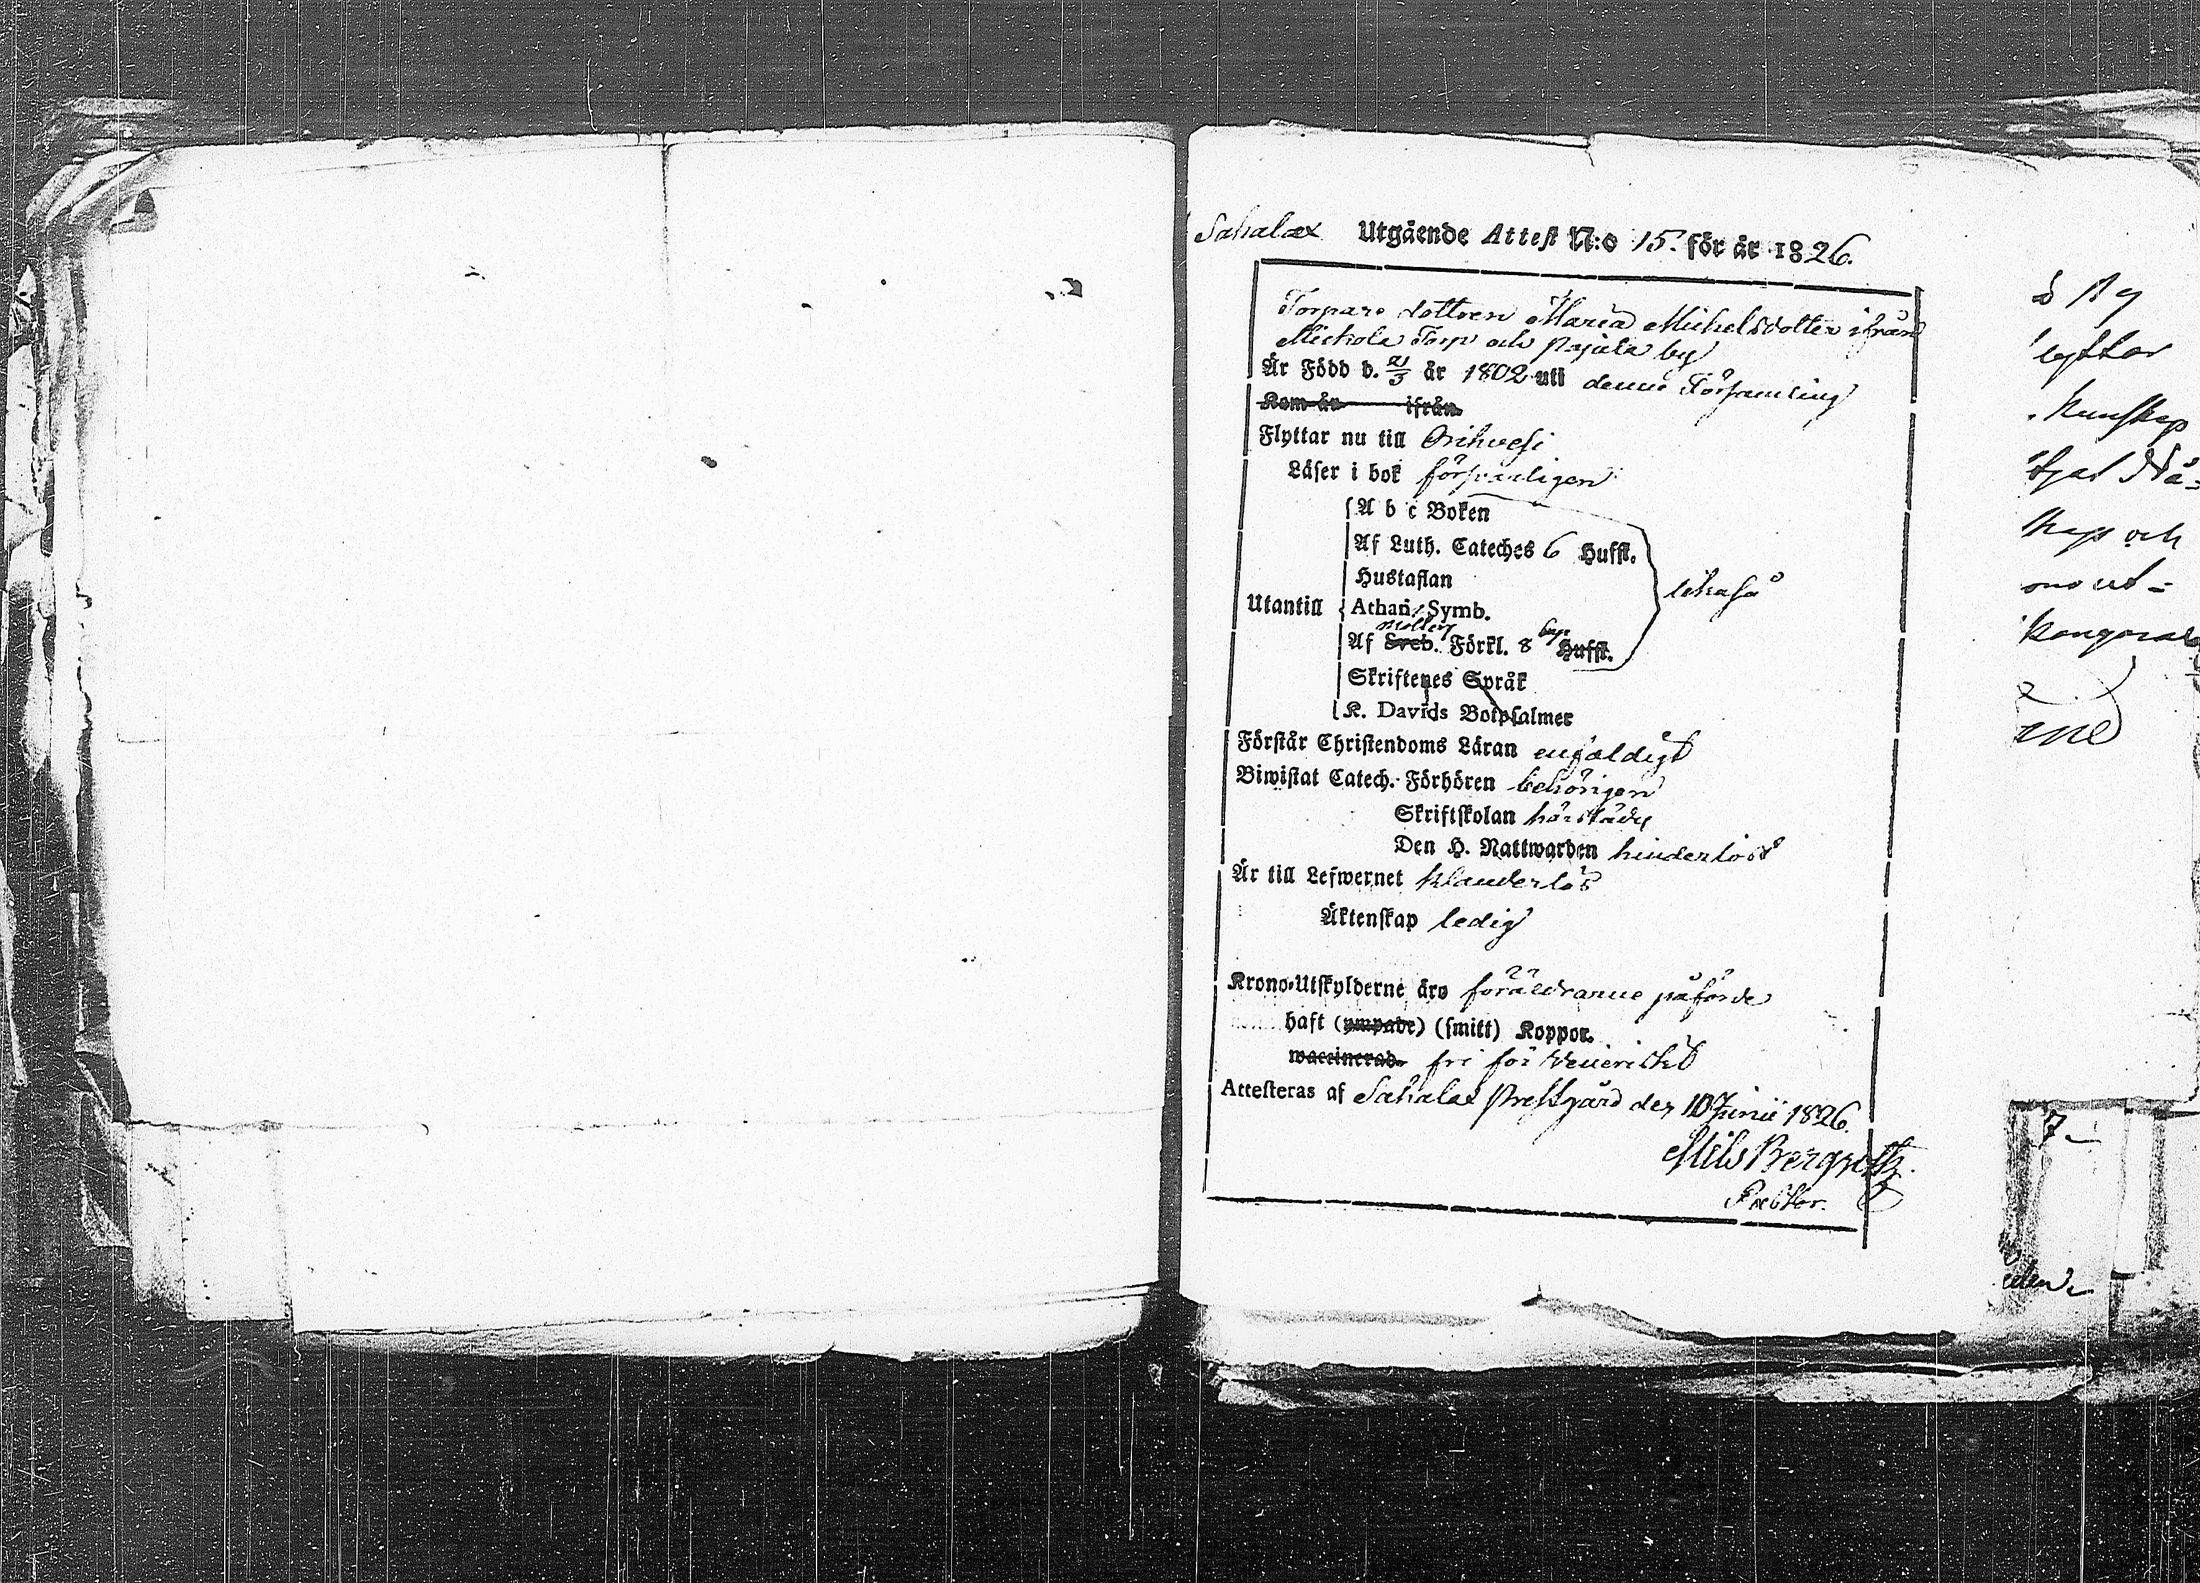 Sahalax Utgående Attest N:o 15. för år 1826.
Torpare dottren Maria Michelsdotter ifrån
Mickola Torp och Pajula by
Är Född d. 2/3 år 1802 uti denne Församling
Kom år ifrån
Flyttar nu till Orihvesi
Läser i bok försvarligen
A b c Boken
Af Luth. Cateches 6 Hufst.
Hustaflan
likaså
Utantill Athan. Symb.
Af Sveb. Förkl. 8 Hufst.
Skriftenes Språk
K. Davids Botpsalmer
Förstår Christendoms Läran enfaldigt
Biwistat Catech. Förhören behörigen
Skriftskolan härstädes
Den H. Nattwarden hinderlöst
Är till Lefwernet klanderlös
Äktenskap ledig
Krono-Utskylderne äro föräldrarne påförde
haft (ympade) (smitt) Koppor.
waccinerad. fri för Veneriskt
Attesteras af Sahalax Prestgård den 10 Junii 1826.
Nils Bergwitz.
Pastor.
lyttar
kunskap
Nå=
skap och
ut=
7_